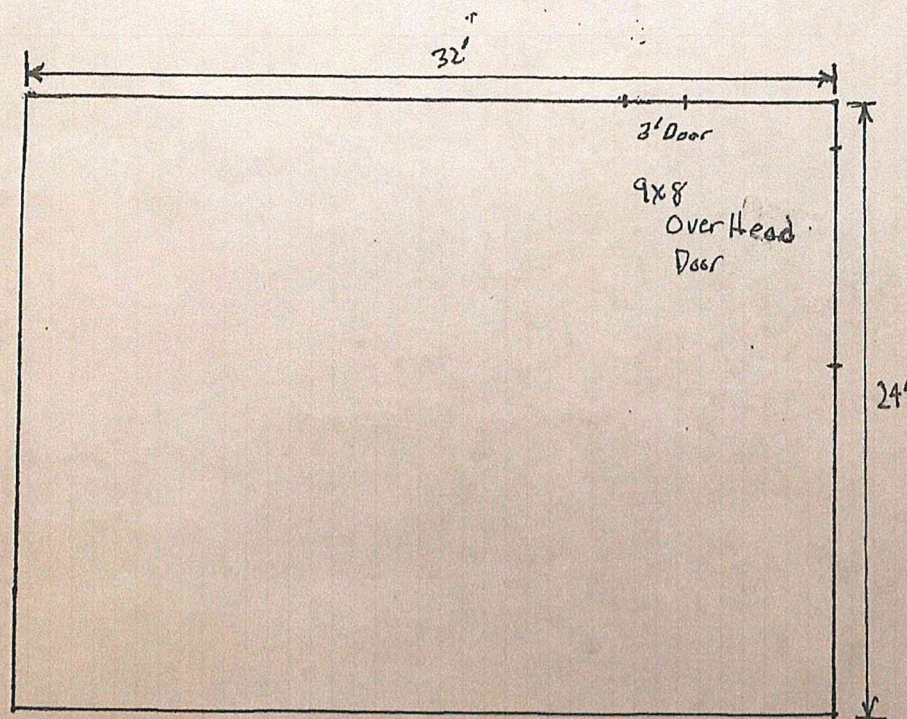 32'
3' Door
9x8
OverHead
Door
24'